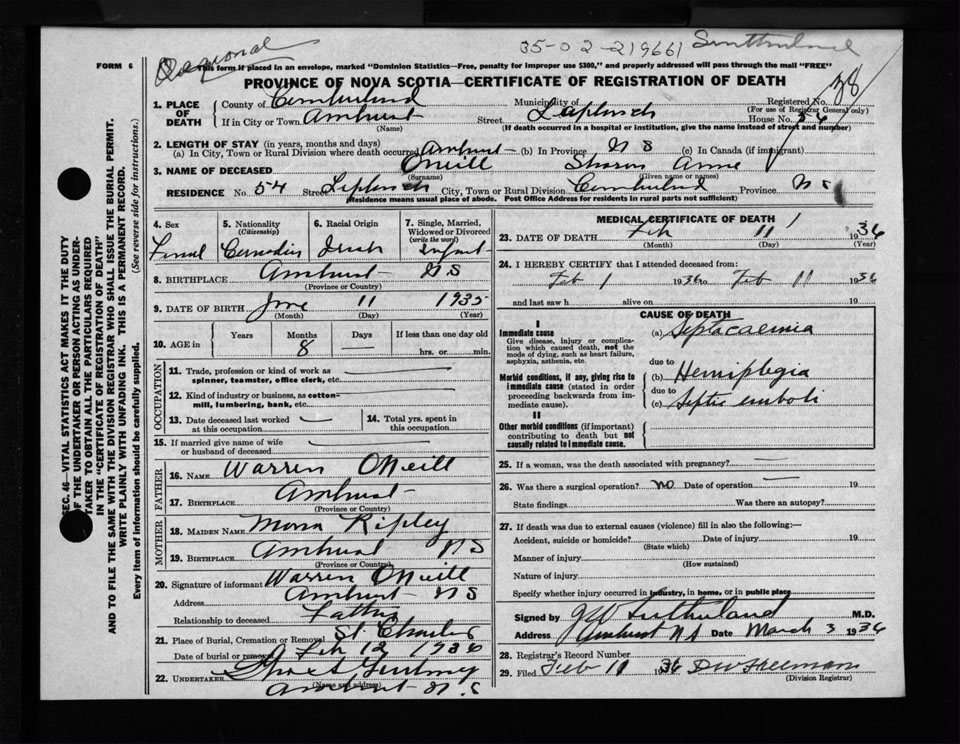 35-02-219661 Sutherland
FORM 6
This form if placed in an envelope, marked "Dominion Statistics—Free, penalty for improper use $300," and properly addressed will pass through the mail "FREE"
PROVINCE OF NOVA SCOTIA—CERTIFICATE OF REGISTRATION OF DEATH
SEC. 46—VITAL STATISTICS ACT MAKES IT THE DUTY
OF THE UNDERTAKER OR PERSON ACTING AS UNDER-
TAKER TO OBTAIN ALL THE PARTICULARS REQUIRED
IN THE "CERTIFICATE OF REGISTRATION OF DEATH"
AND TO FILE THE SAME WITH THE DIVISION REGISTRAR WHO SHALL ISSUE THE BURIAL PERMIT.
WRITE PLAINLY WITH UNFADING INK. THIS IS A PERMANENT RECORD.
Every item of information should be carefully supplied. (See reverse side for instructions.)
1. PLACE OF DEATH County of Cumberland Municipality of Registered No. 38
(For use of Registrar General only)
If in City or Town Amherst Street House No. 54
(Name) (If death occurred in a hospital or institution, give the name instead of street and number)
2. LENGTH OF STAY (in years, months and days)
(a) In City, Town or Rural Division where death occurred Amherst (b) In Province N S (c) In Canada (if immigrant)
3. NAME OF DECEASED O'Neill Sharon Anne
(Surname) (Given name or names)
RESIDENCE No. 54 Street City, Town or Rural Division Cumberland Province N S
(Residence means usual place of abode. Post Office Address for residents in rural parts not sufficient)
4. Sex 5. Nationality (Citizenship) 6. Racial Origin 7. Single, Married, Widowed or Divorced (write the word)
Femal Canadian Irish Infant
8. BIRTHPLACE Amherst N S
(Province or Country)
9. DATE OF BIRTH June 11 1935
(Month) (Day) (Year)
10. AGE in Years Months Days If less than one day old
8 — hrs. or min.
OCCUPATION
11. Trade, profession or kind of work as spinner, teamster, office clerk, etc.
12. Kind of industry or business, as cotton-mill, lumbering, bank, etc.
13. Date deceased last worked at this occupation 14. Total yrs. spent in this occupation
15. If married give name of wife or husband of deceased
FATHER
16. NAME Warren O'Neill
17. BIRTHPLACE Amherst
(Province or Country)
MOTHER
18. MAIDEN NAME Mona Ripley
19. BIRTHPLACE Amherst N S
(Province or Country)
20. Signature of informant Warren O'Neill
Address Amherst N S
Relationship to deceased Father
21. Place of Burial, Cremation or Removal St Charles
Date of burial or removal Feb 12 1936
22. UNDERTAKER
(Name and address)
Amherst N.S
MEDICAL CERTIFICATE OF DEATH
23. DATE OF DEATH Feb 11 1936
(Month) (Day) (Year)
24. I HEREBY CERTIFY that I attended deceased from:
Feb 1 1936 to Feb 11 1936
and last saw h alive on 19
CAUSE OF DEATH
I
Immediate cause (a) Septacaemia
Give disease, injury or complication which caused death, not the mode of dying, such as heart failure, asphyxia, asthenia, etc.
due to
Morbid conditions, if any, giving rise to immediate cause (stated in order proceeding backwards from immediate cause). (b) Hemiplegia
due to
(c) Septic emboli
II
Other morbid conditions (if important) contributing to death but not causally related to immediate cause.
25. If a woman, was the death associated with pregnancy? —
26. Was there a surgical operation? no Date of operation — 19
State findings Was there an autopsy?
27. If death was due to external causes (violence) fill in also the following:—
Accident, suicide or homicide? Date of injury 19
(State which)
Manner of injury
(How sustained)
Nature of injury
Specify whether injury occurred in industry, in home, or in public place
Signed by J W Sutherland M.D.
Address Amherst N S Date March 3 1936
28. Registrar's Record Number
29. Filed Feb 11 1936 D W Freeman
(Division Registrar)